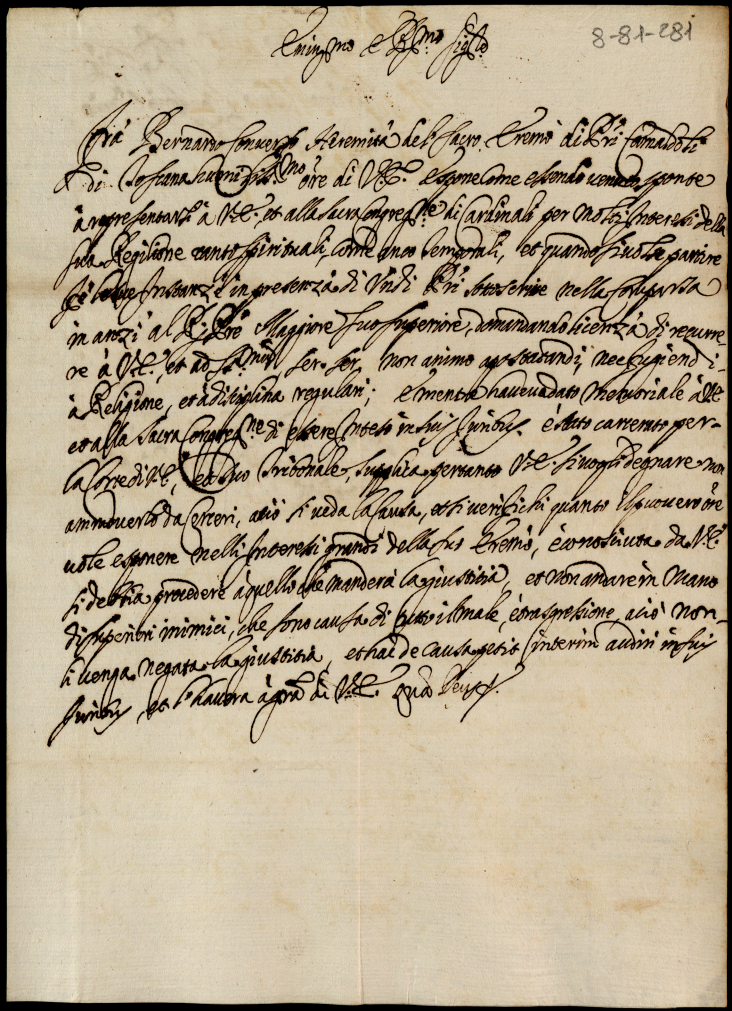 8-81-281
Emin.mo e R.mo Sig.re
Fra Bernardo Converso Heremita del Sacro Eremo di PP.ri Camaldoli
di Toscana humiliss.mo ore di V.E. espone come essendo venuto sponte
à representarsi à V.E. et alla Sacra Congreg.ne di Cardinali per molti Interessi della
sua Regilione tanto spirituali, come anco temporali, et quando si volse partire
fè Instanze in presenza di PP.ri sottoscritte nella Comparsa
in anzi al P. Pre Maggiore suo superiore, domandando licenza di recurre-
re à V.E., et ad non animo apostatandi, nec fugiendi
à Religione, et à disciplina regulari; e mentre haveva dato Memoriale à V.E.
et alla Sacra Congreg.ne di essere Inteso in suis Juribus è stato carcerato per
la Corte di V.E., et suo Tribonale, supplica pertanto V.E. si vogli degnare non
ammoverlo da Carceri, aciò si veda la Causa, et si verifichi quanto Il povero ore
vole esponere nelli Interessi grandi della suo Eremo, è conosciuta da V.E.
si debbia procedere à quello che manderà la giustitia, et non andare in Mano
di superiori inimici, che sono causa di tutto il male, è trasgressione, aciò non
li venga negata la giustitia, et hac de Causa petit interim audiri in suis
Juribus, et l'haverà à gra di V.E. quam Deus.